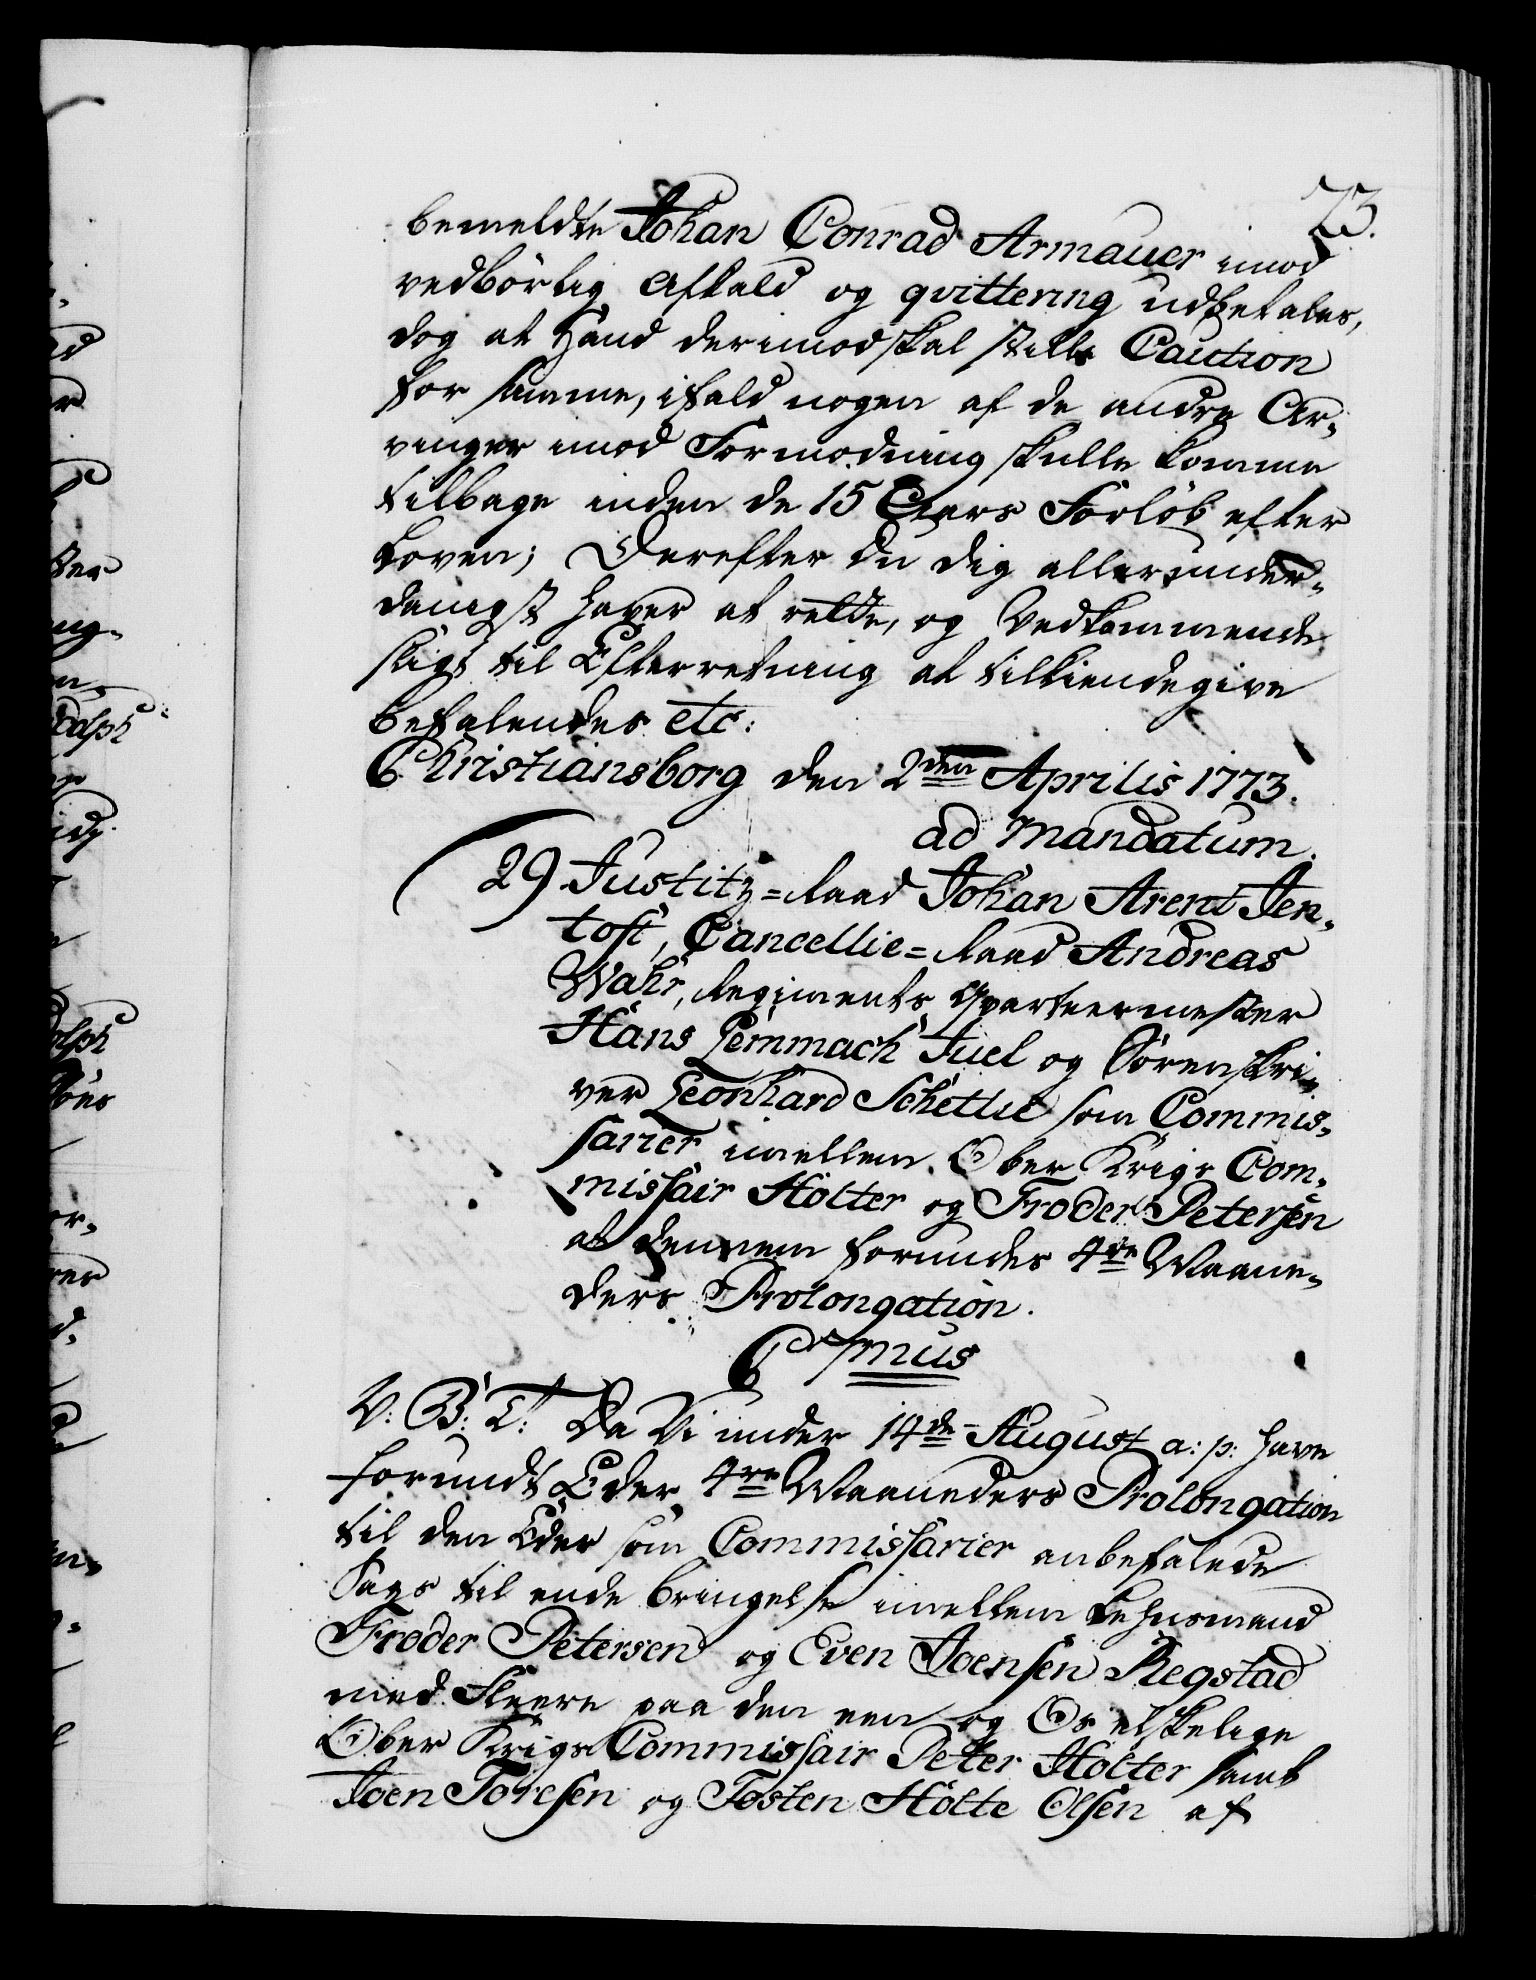 73.
bemeldte Johan Conrad Armauer imod
vedbørlig Afkald og qvittering udbetales,
dog at Hand derimod skal stille Caution
for samme, ifald nogen af de andre Ar-
vinger imod Formodning skulle komme
tilbage inden de 15 Aars Forløb efter
Loven; Derefter du dig allerunder-
danigst haver at rette, og Vedkommende
sligt til Efterretning at tilkiendegive
befalendes etc:
Christiansborg den 2den Aprilis 1773.
ad Mandatum.
29 Justitz=Raad Johan Arent Jen-
toft, Cancellie=Raad Andreas
Wahr, Regiments Qvarteermester
Hans Lemmach Juel og Sørenskri-
ver Leonhard Schetlie som Commis-
sarier imellem Ober Krigs Com-
missair Holter og Froder Petersen
at dennem forundes 4re Maane-
ders Prolongation.
C 7mus
V: B: T: Da Vi under 14de August a: p: have
forundt Eder 4re Maaneders Prolongation
til den Eder som Commissarier anbefalede
Sags til ende bringelse imellem Lehnsmand
Froder Petersen og Even Joensen Regstad
med Fleere paa den een og Os elskelige
Ober Krigs Commissair Peter Holter samt
Joen Toresen og Tosten Holte Olsen af